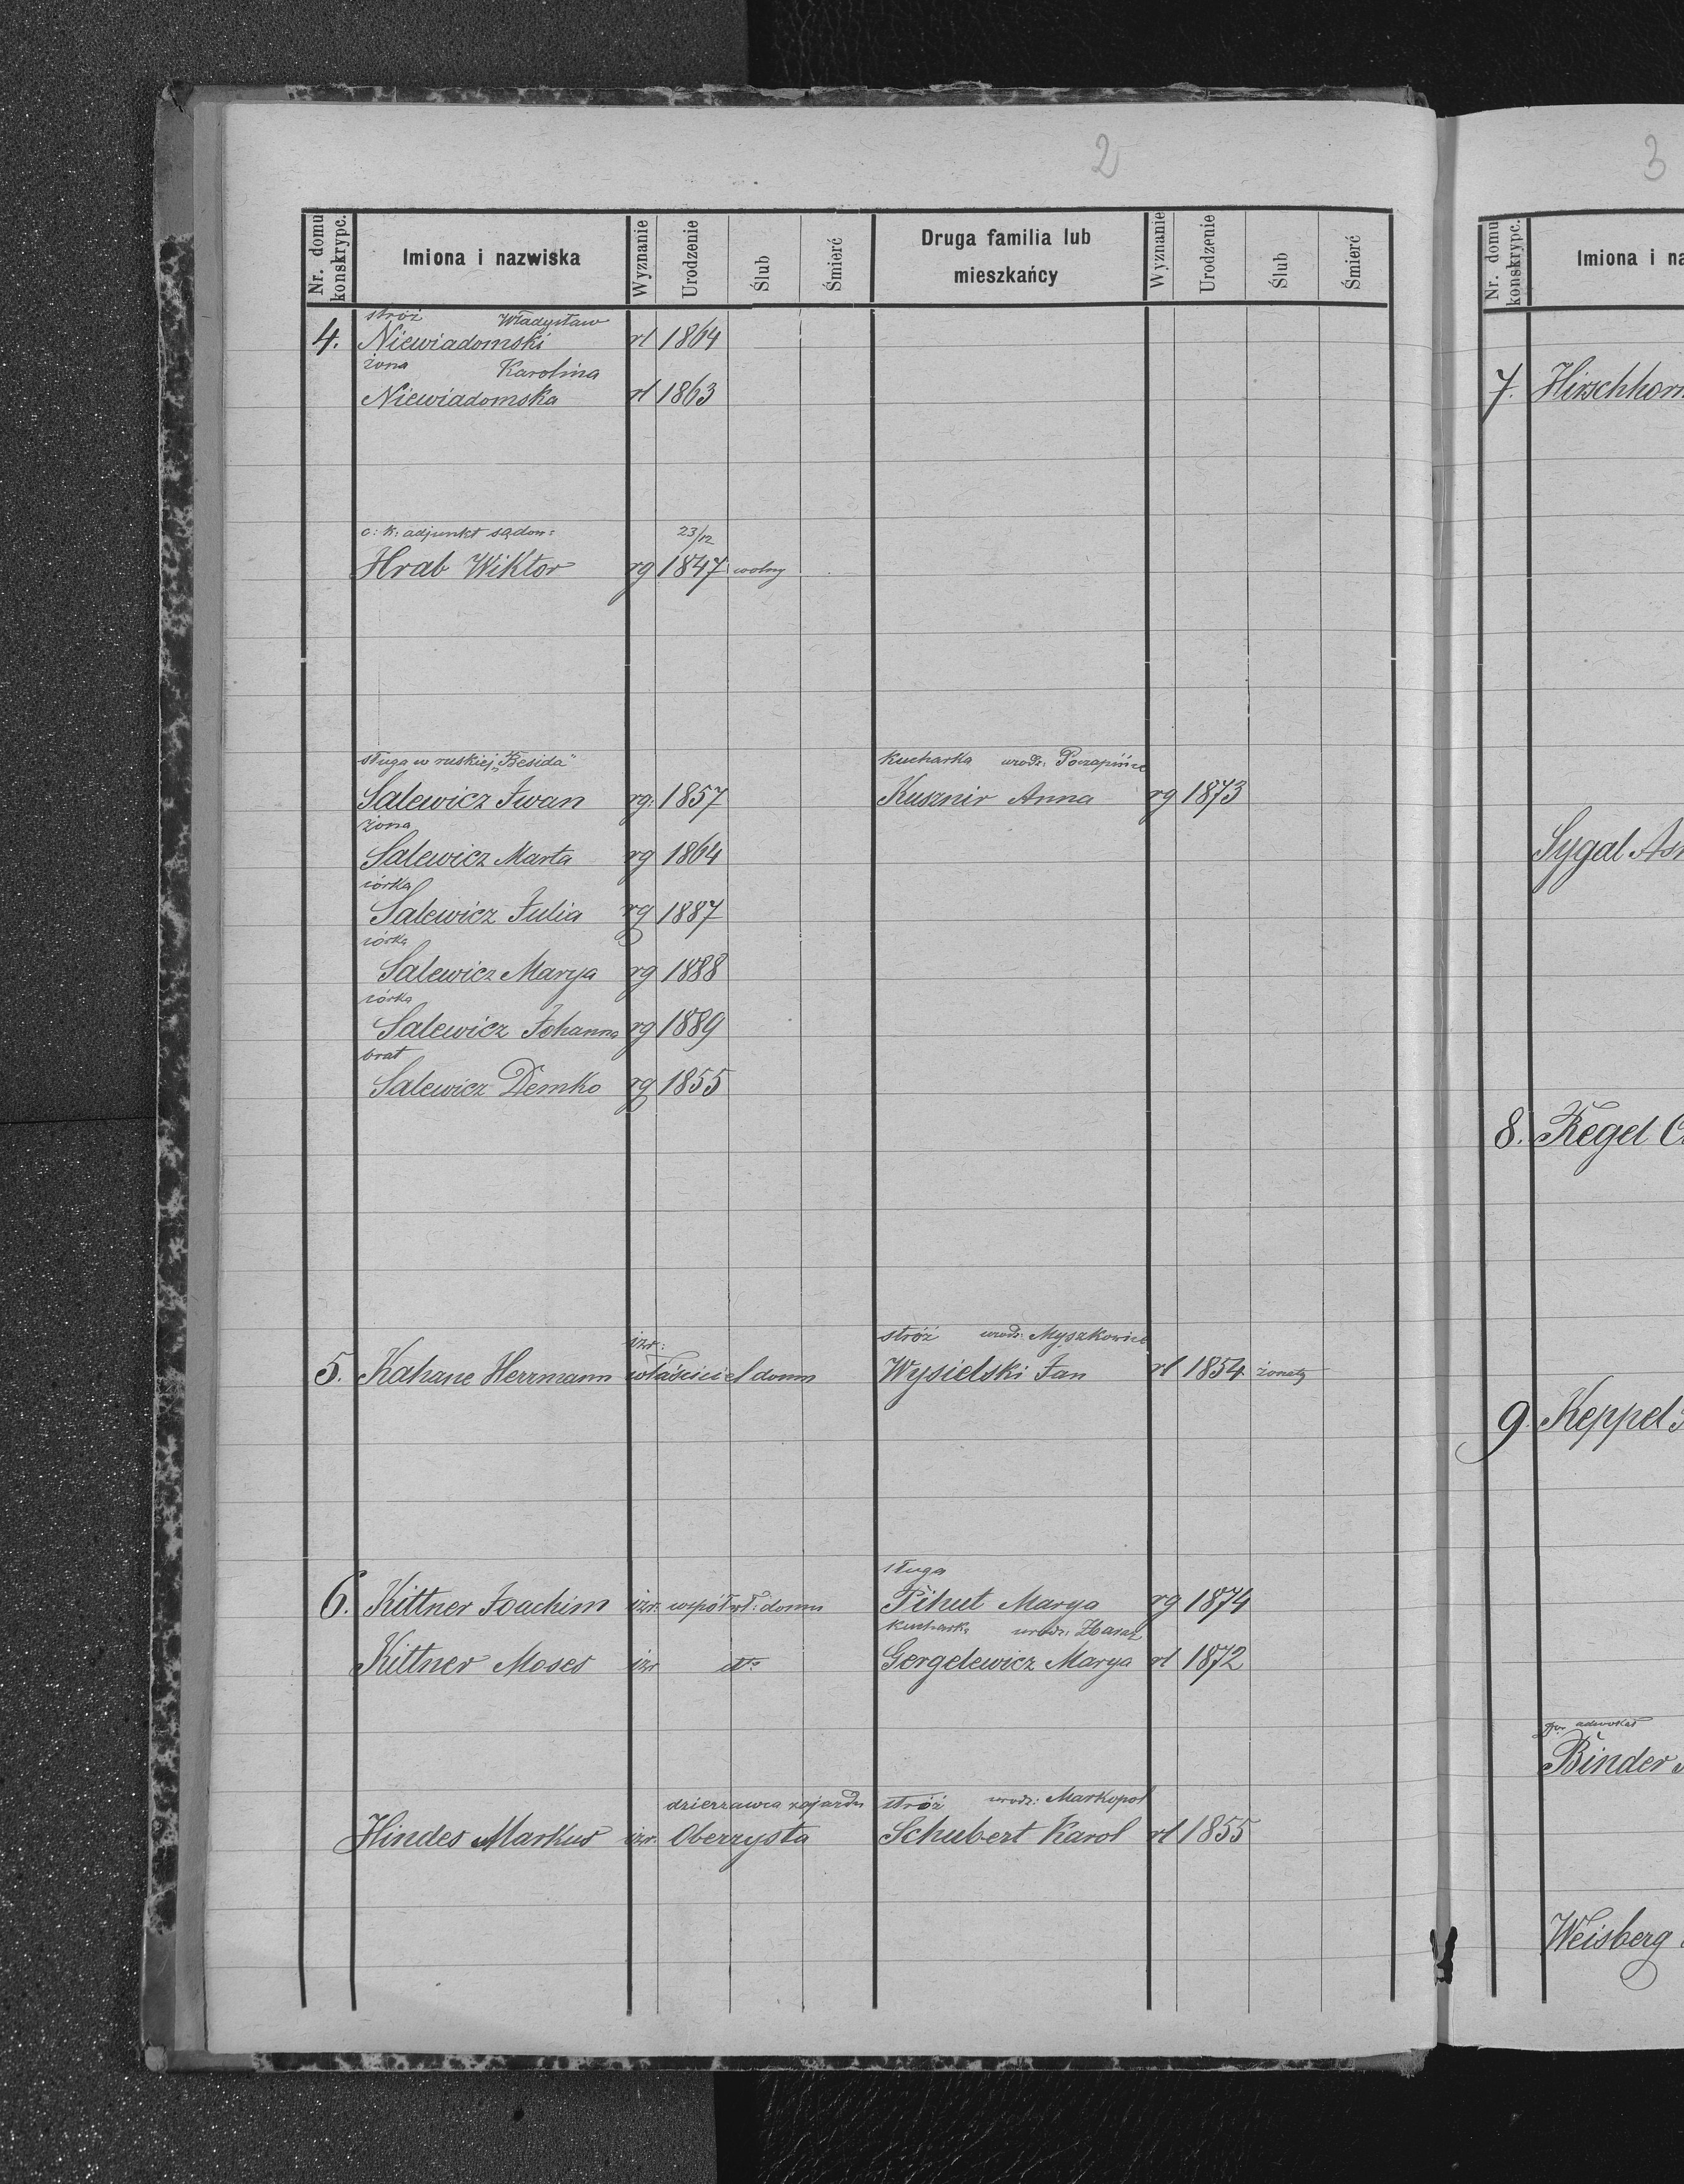 2
3
Nr. domu konskrypc.
Imiona i nazwiska
Wyznanie
Urodzenie
Ślub
Śmierć
Druga familia lub mieszkańcy
Wyznanie
Urodzenie
Ślub
Śmierć
stróż Władysław
4. Niewiadomski rl 1864
żona Karolina
Niewiadomska rl 1863
c: k: adjunkt sądow: 23/12
Hrab Wiktor rg 1847 wolny
sługa w ruskiej „Besida" kucharka urodz: Poczapińce
Salewicz Iwan rg. 1857 Kusznir Anna rg 1873
żona
Salewicz Marta rg 1864
córka
Salewicz Julia rg 1887
córka
Salewicz Marya rg 1888
córka
Salewicz Johanna rg 1889
brat
Salewicz Demko rg 1855
izr: stróż urodz: Myszkowice
5. Kahane Herrmann właściciel domu Wysielski Jan rl 1854 żonaty
sługa
6. Kittner Joachim izr. współwł: domu Pihut Marya rg 1874
kucharka urodz: Zbaraż
Kittner Moses izr dto Gergelewicz Marya rl 1872
dzierzawca zajazdu stróż urodz: Markopol
Hindes Markus izr. Oberzysta Schubert Karol rl 1855
Nr. domu konskrypc.
Imiona i na
7. Hirschhorn
Sygal As
8. Kegel C
9. Keppel
adwokat
Binder
Weisberg